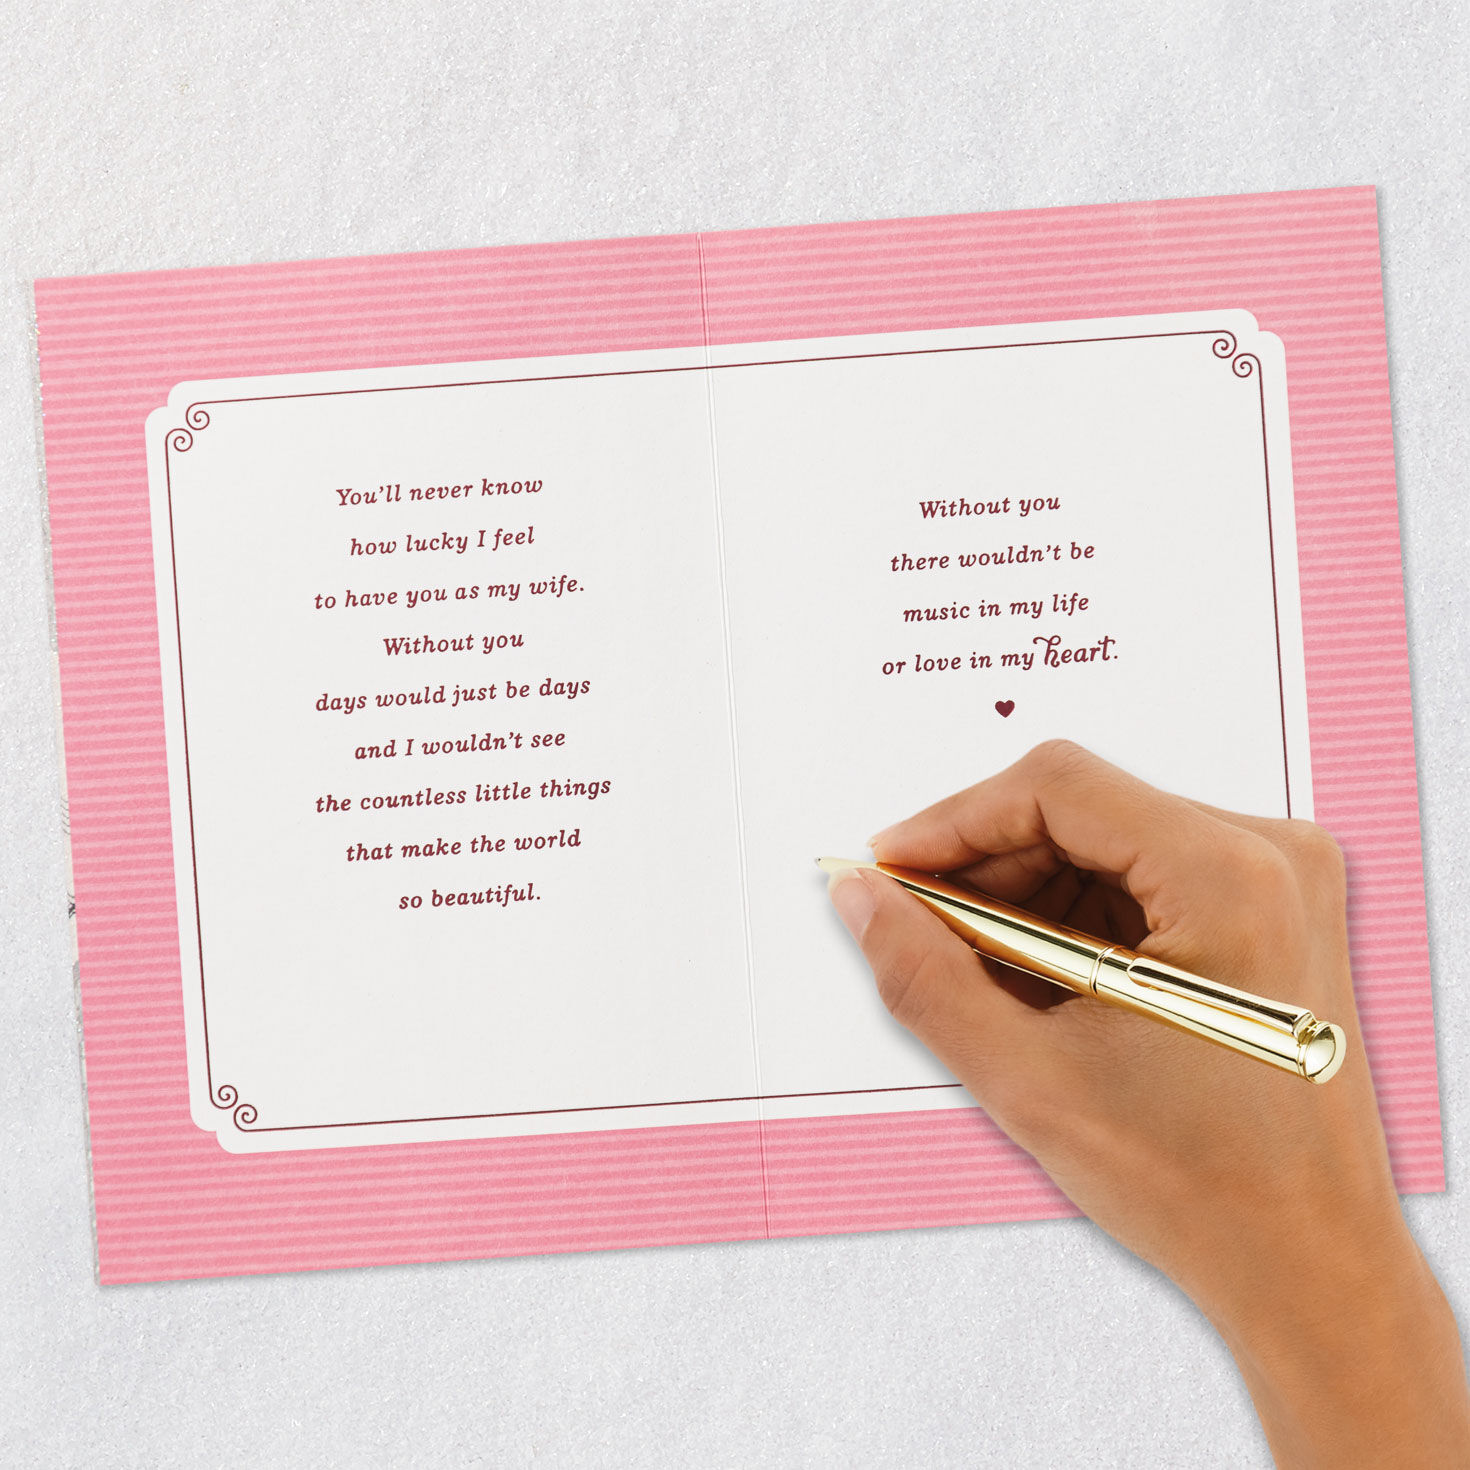 You'll never know
how lucky I feel
to have you as my wife.
Without you
days would just be days
and I wouldn't see
the countless little things
that make the world
so beautiful.
Without you
there wouldn't be
music in my life
or love in my heart.